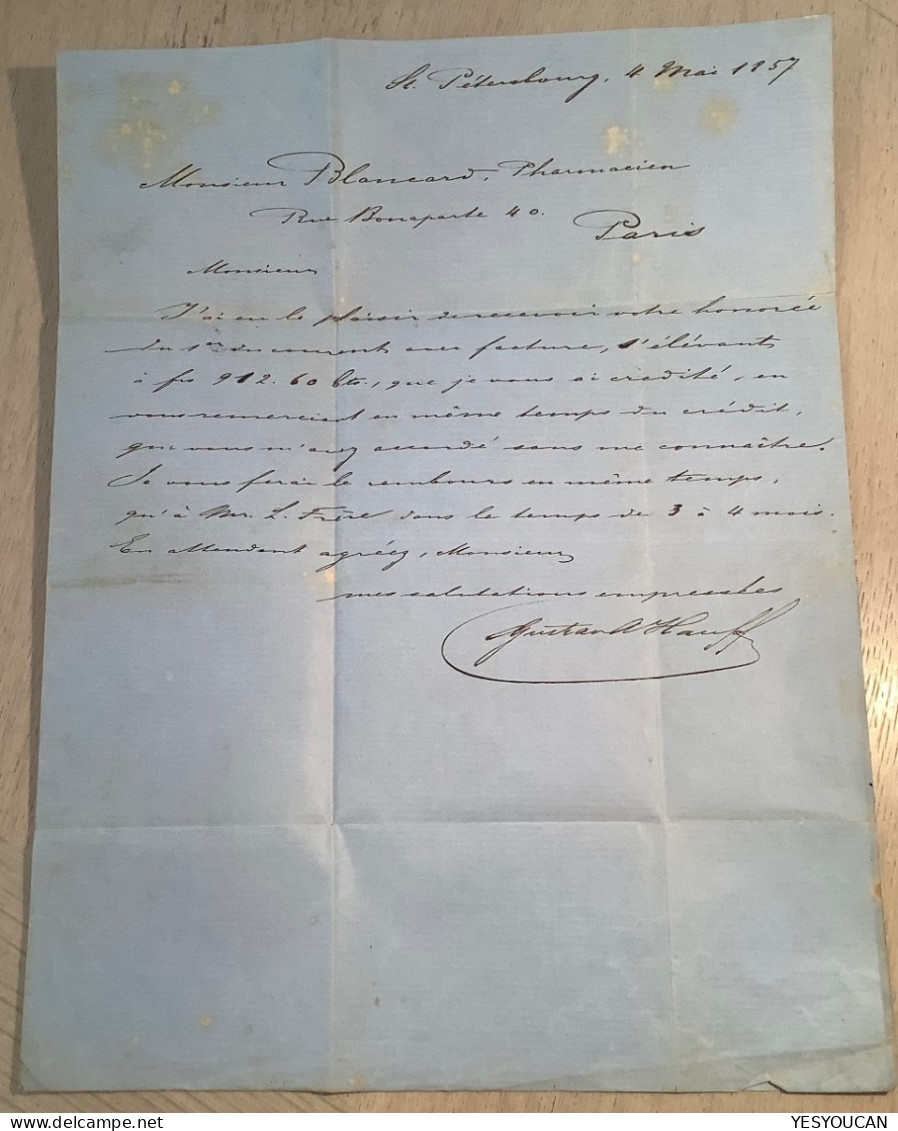 St. Pétersbourg, 4 Mai 1857
Monsieur Blancard, Pharmacien
Rue Bonaparte 40.
Paris
Monsieur
J'ai eu le plaisir de recevoir votre honorée
du 1er du courrent avec facture, s'élévants
à frs 912.60 Cts., que je vous ai credité, en
vous remerciant en même temps du crédit,
que vous m'avez accordé sans me connaître.
Je vous ferai le rembours en même temps,
qu'à Mr. L. Frère dans le temps de 3 à 4 mois.
En attendent agréez, Monsieur
mes salutations empressées
Gustav A Hauff
YESYOUCAN